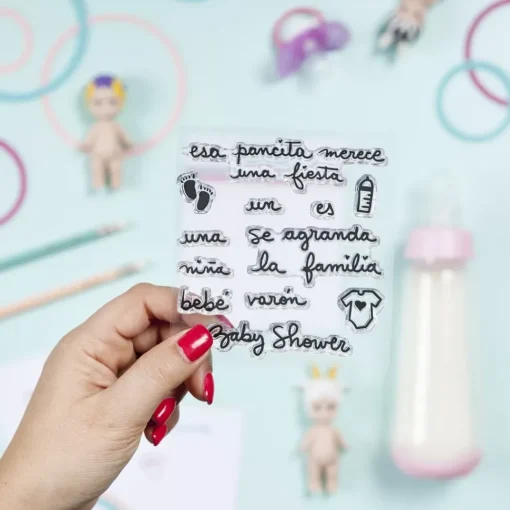 esa pancita merece
una fiesta
un es
una se agranda
niña la familia
bebé varón
Baby Shower